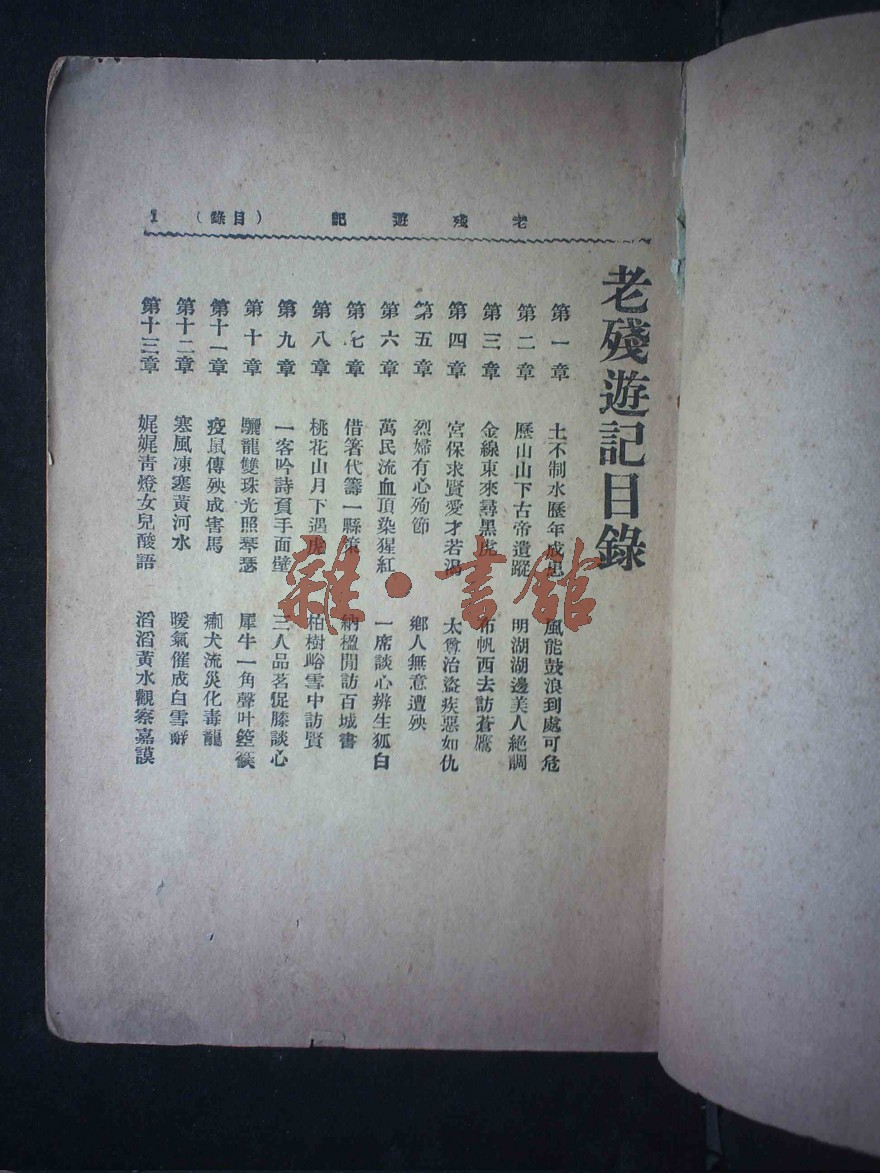 老殘遊記 （目錄） 1
老殘遊記目錄
第一章 土不制水歷年成患 風能鼓浪到處可危
第二章 歷山山下古帝遺蹤 明湖湖邊美人絕調
第三章 金線東來尋黑虎 布帆西去訪蒼鷹
第四章 宮保求賢愛才若渴 太尊治盜疾惡如仇
第五章 烈婦有心殉節 鄉人無意遭殃
第六章 萬民流血頂染猩紅 一席談心辨生狐白
第七章 借箸代籌一縣策 納楹閒訪百城書
第八章 桃花山月下遇虎 柏樹峪雪中訪賢
第九章 一客吟詩負手面壁 三人品茗促膝談心
第十章 驪龍雙珠光照琴瑟 犀牛一角聲叶箜篌
第十一章 疫鼠傳殃成害馬 瘈犬流災化毒龍
第十二章 寒風凍塞黃河水 暖氣催成白雪辭
第十三章 娓娓青燈女兒酸語 滔滔黃水觀察嘉謨
雜·書館